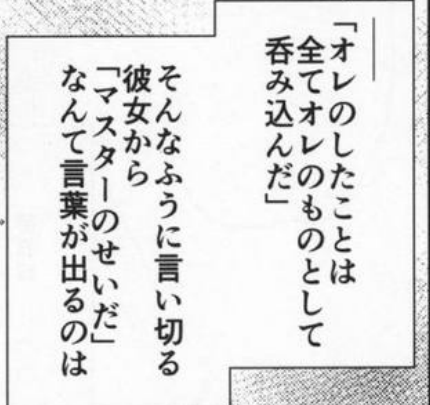 ――
「オレのしたことは
全てオレのものとして
呑み込んだ」
そんなふうに言い切る
彼女から
「マスターのせいだ」
なんて言葉が出るのは